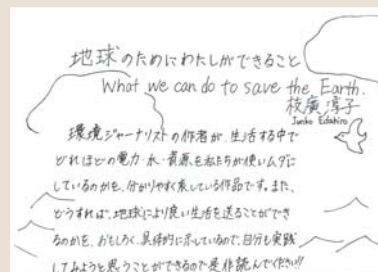 地球のためにわたしができること
What we can do to save the Earth.
枝廣淳子
Junko Edahiro
環境ジャーナリストの作者が、生活する中で
どれほどの電力・水・資源を私たちが使いムダに
しているのかを、分かりやすく表している作品です。また、
どうすれば、地球により良い生活を送ることができ
るのかを、おもしろく、具体的に示しているので、自分も実践
してみようと思うことができるので是非読んでください!!